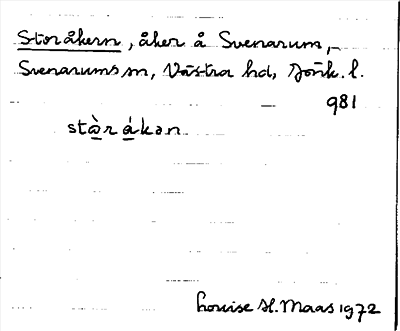 Storåkern, åker å Svenarum,
Svenarums sn, Västra hd, Jönk. l.
981
stὰ̱rά̱kən
Louise H. Maas 1972